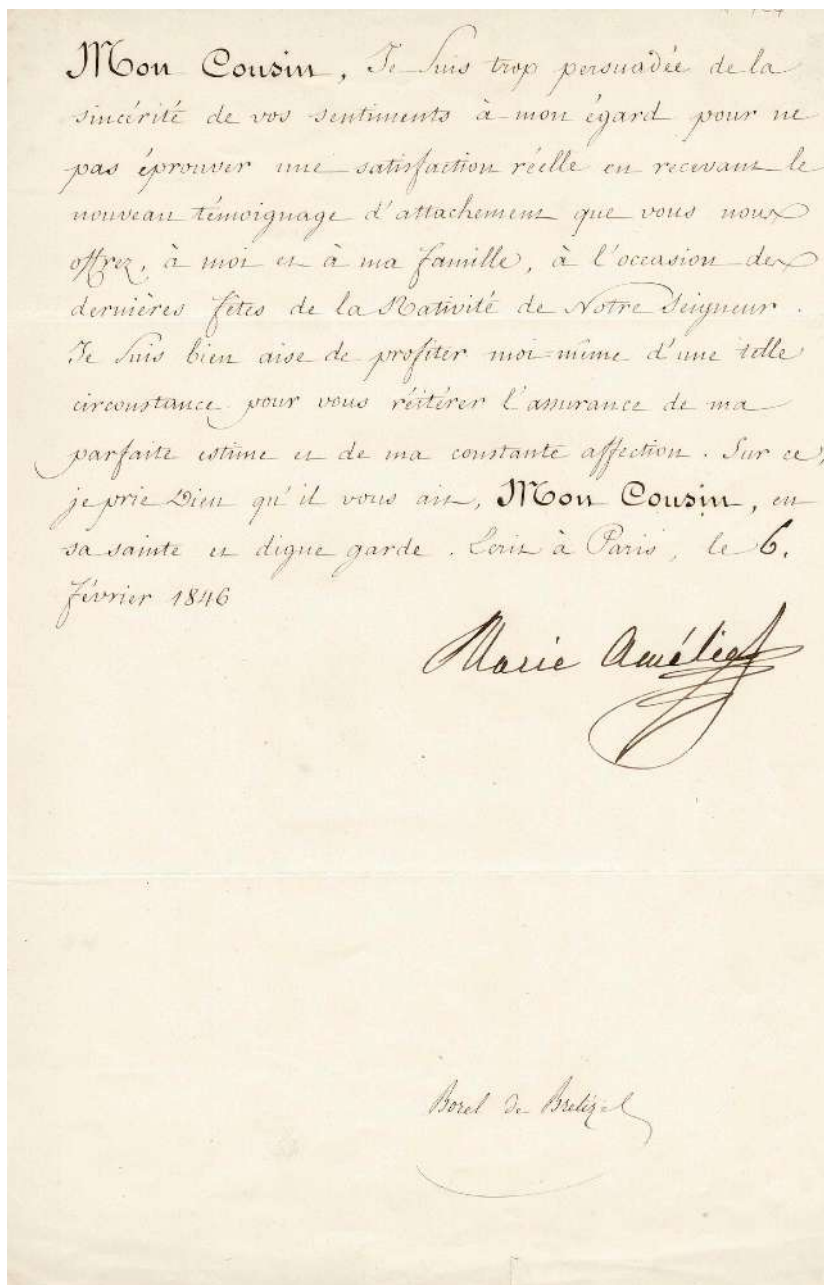 Mon Cousin, Je suis trop persuadée de la
sincérité de vos sentiments à mon égard pour ne
pas éprouver une satisfaction réelle en recevant le
nouveau témoignage d'attachement que vous nous
offrez, à moi et à ma famille, à l'occasion des
dernières fêtes de la Nativité de Notre Seigneur.
Je suis bien aise de profiter moi-même d'une telle
circonstance pour vous réitérer l'assurance de ma
parfaite estime et de ma constante affection. Sur ce,
je prie Dieu qu'il vous ait, Mon Cousin, en
sa sainte et digne garde. Ecrit à Paris, le 6.
février 1846
Marie Amélie
Borel de Bretizel